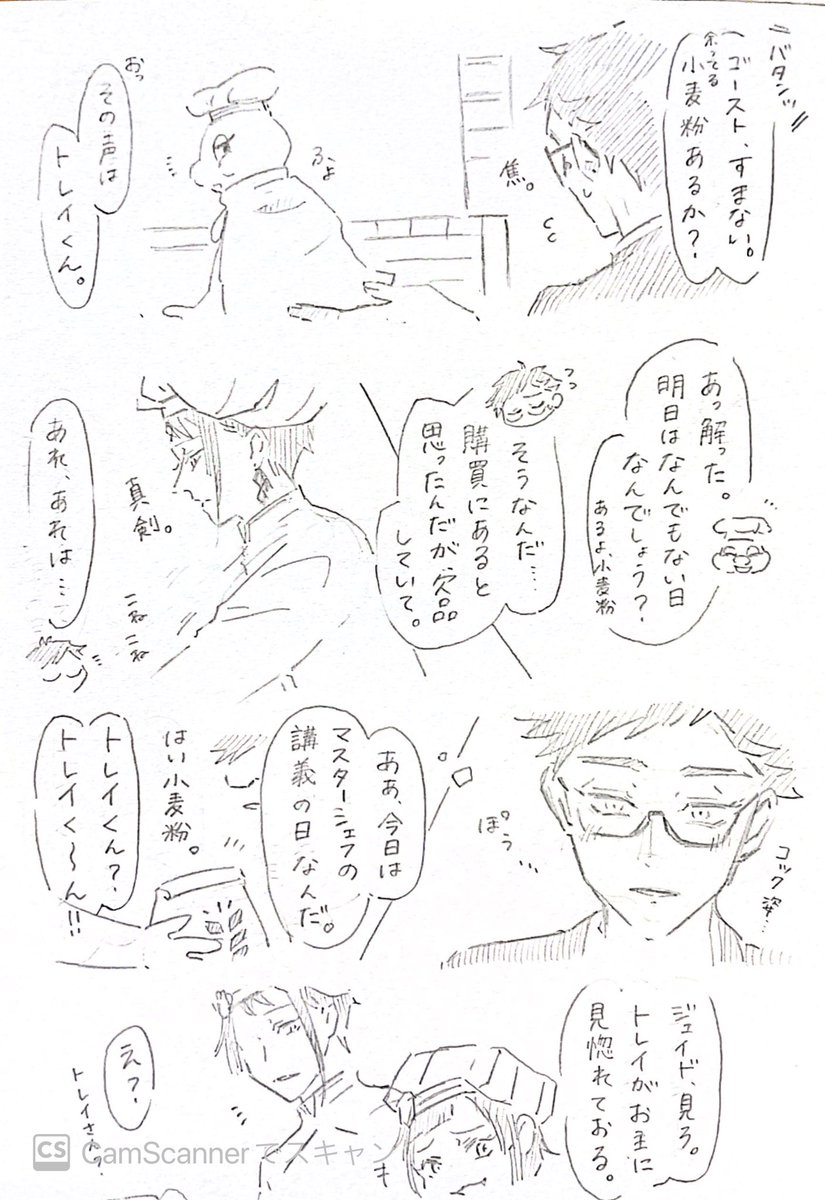 バタンッ
ゴースト、すまない。
余ってる
小麦粉あるか？
焦。
ふよ
おっ
その声は
トレイくん。
あっ解った。
明日はなんでもない日
なんでしょう？
あるよ、小麦粉
そうなんだ…
購買にあると
思ったんだが、欠品
していて。
真剣。
こねこね
あれ、あれは…
コック姿…
ぽぅ…
ああ、今日は
マスターシェフの
講義の日なんだ。
はい小麦粉。
トレイくん？
トレイく〜ん!!
ジェイド、見ろ。
トレイがお主に
見惚れておる。
え？
トレイさん？
CS CamScanner でスキャン